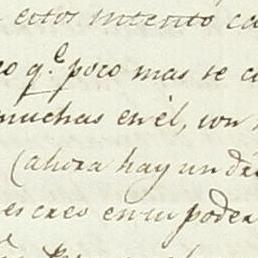 estos intento ca
o q.e poco mas se c
muchas en él, con
(ahora hay un dr
es creo en su poder